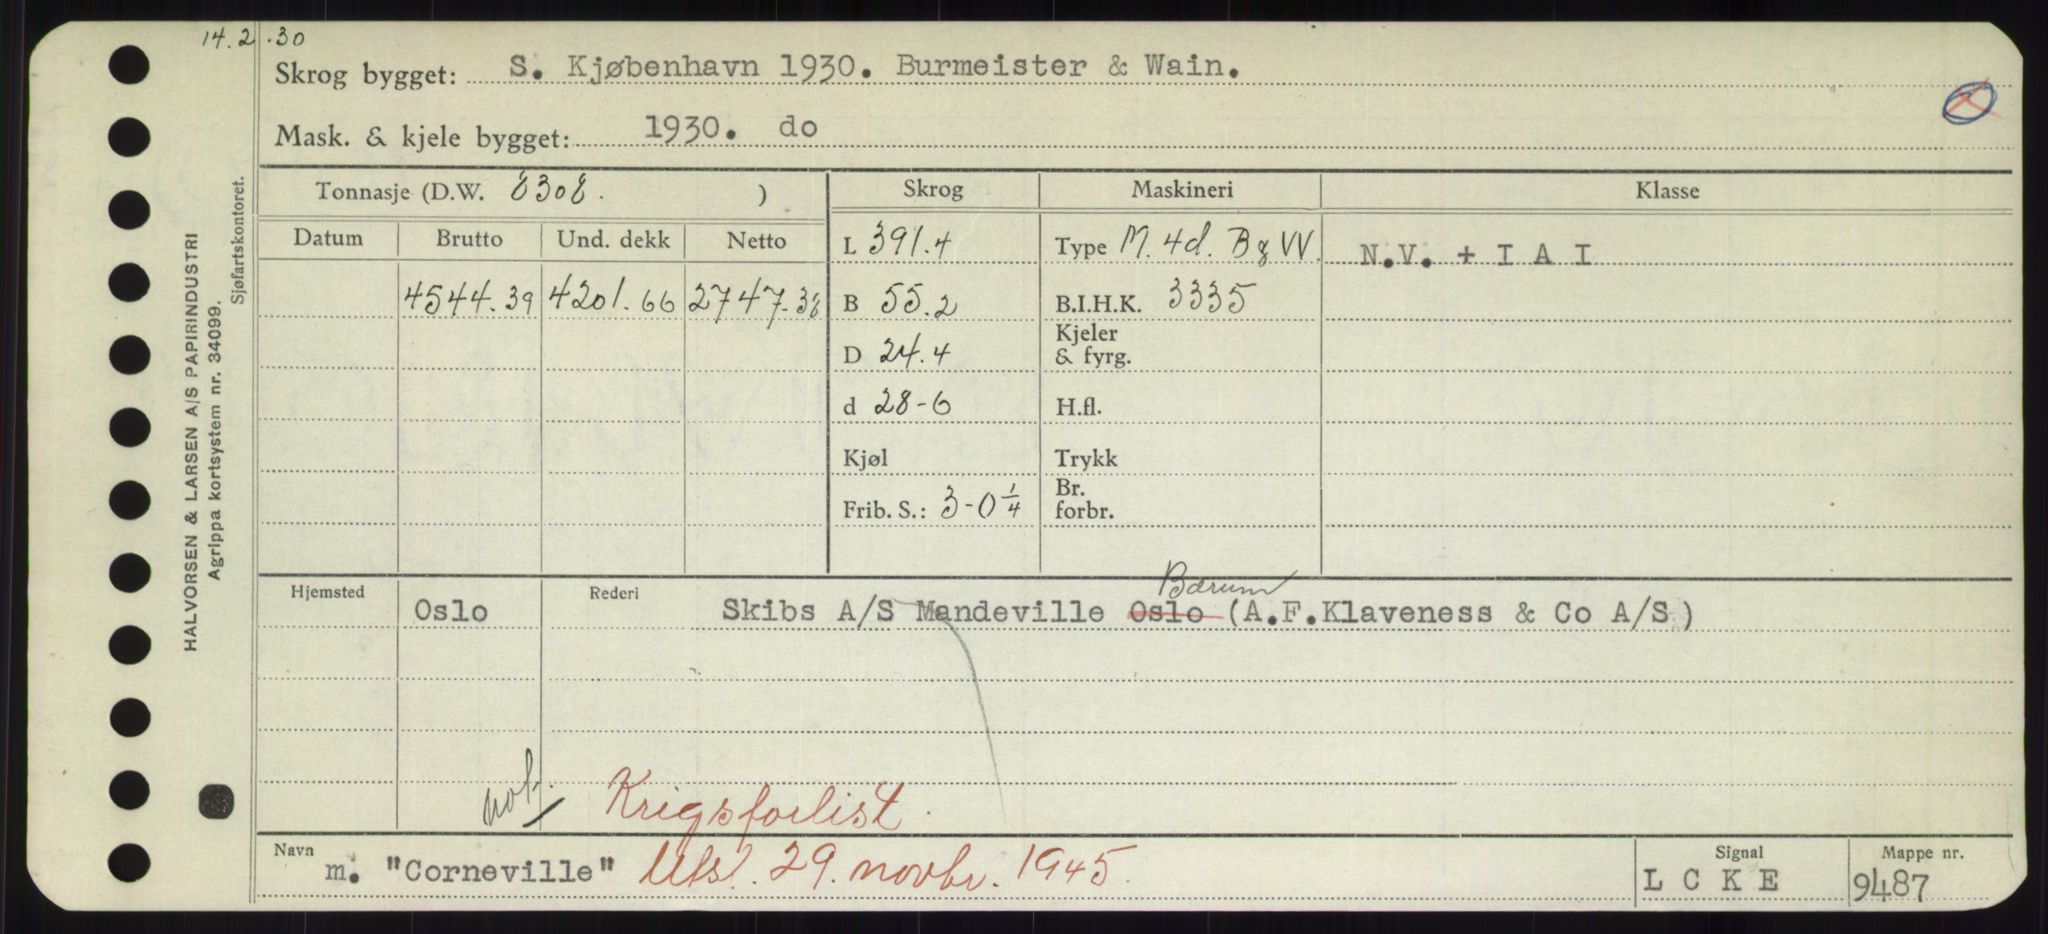 14.2.30
Skrog bygget: S. Kjøbenhavn 1930. Burmeister & Wain.
Mask. & kjele bygget: 1930. do
Tonnasje (D.W. 8308. ) Skrog Maskineri Klasse
Datum Brutto Und. dekk Netto L 391.4 Type M. 4d. B & W. N.V. + I A I
4544.39 4201.66 2747.38 B 55.2 B.I.H.K. 3335
D 24.4 Kjeler & fyrg.
d 28-6 H.fl.
Kjøl Trykk
Frib. S.: 3-0 1/4 Br. forbr.
Bærum
Hjemsted Oslo Rederi Skibs A/S Mandeville Oslo (A.F.Klaveness & Co A/S)
not. Krigsforlist.
Navn m. "Corneville" Utsl. 29. novbr. 1945. Signal L C K E Mappe nr. 9487
HALVORSEN & LARSEN A/S PAPIRINDUSTRI
Agrippa kortsystem nr. 34099.
Sjøfartskontoret.